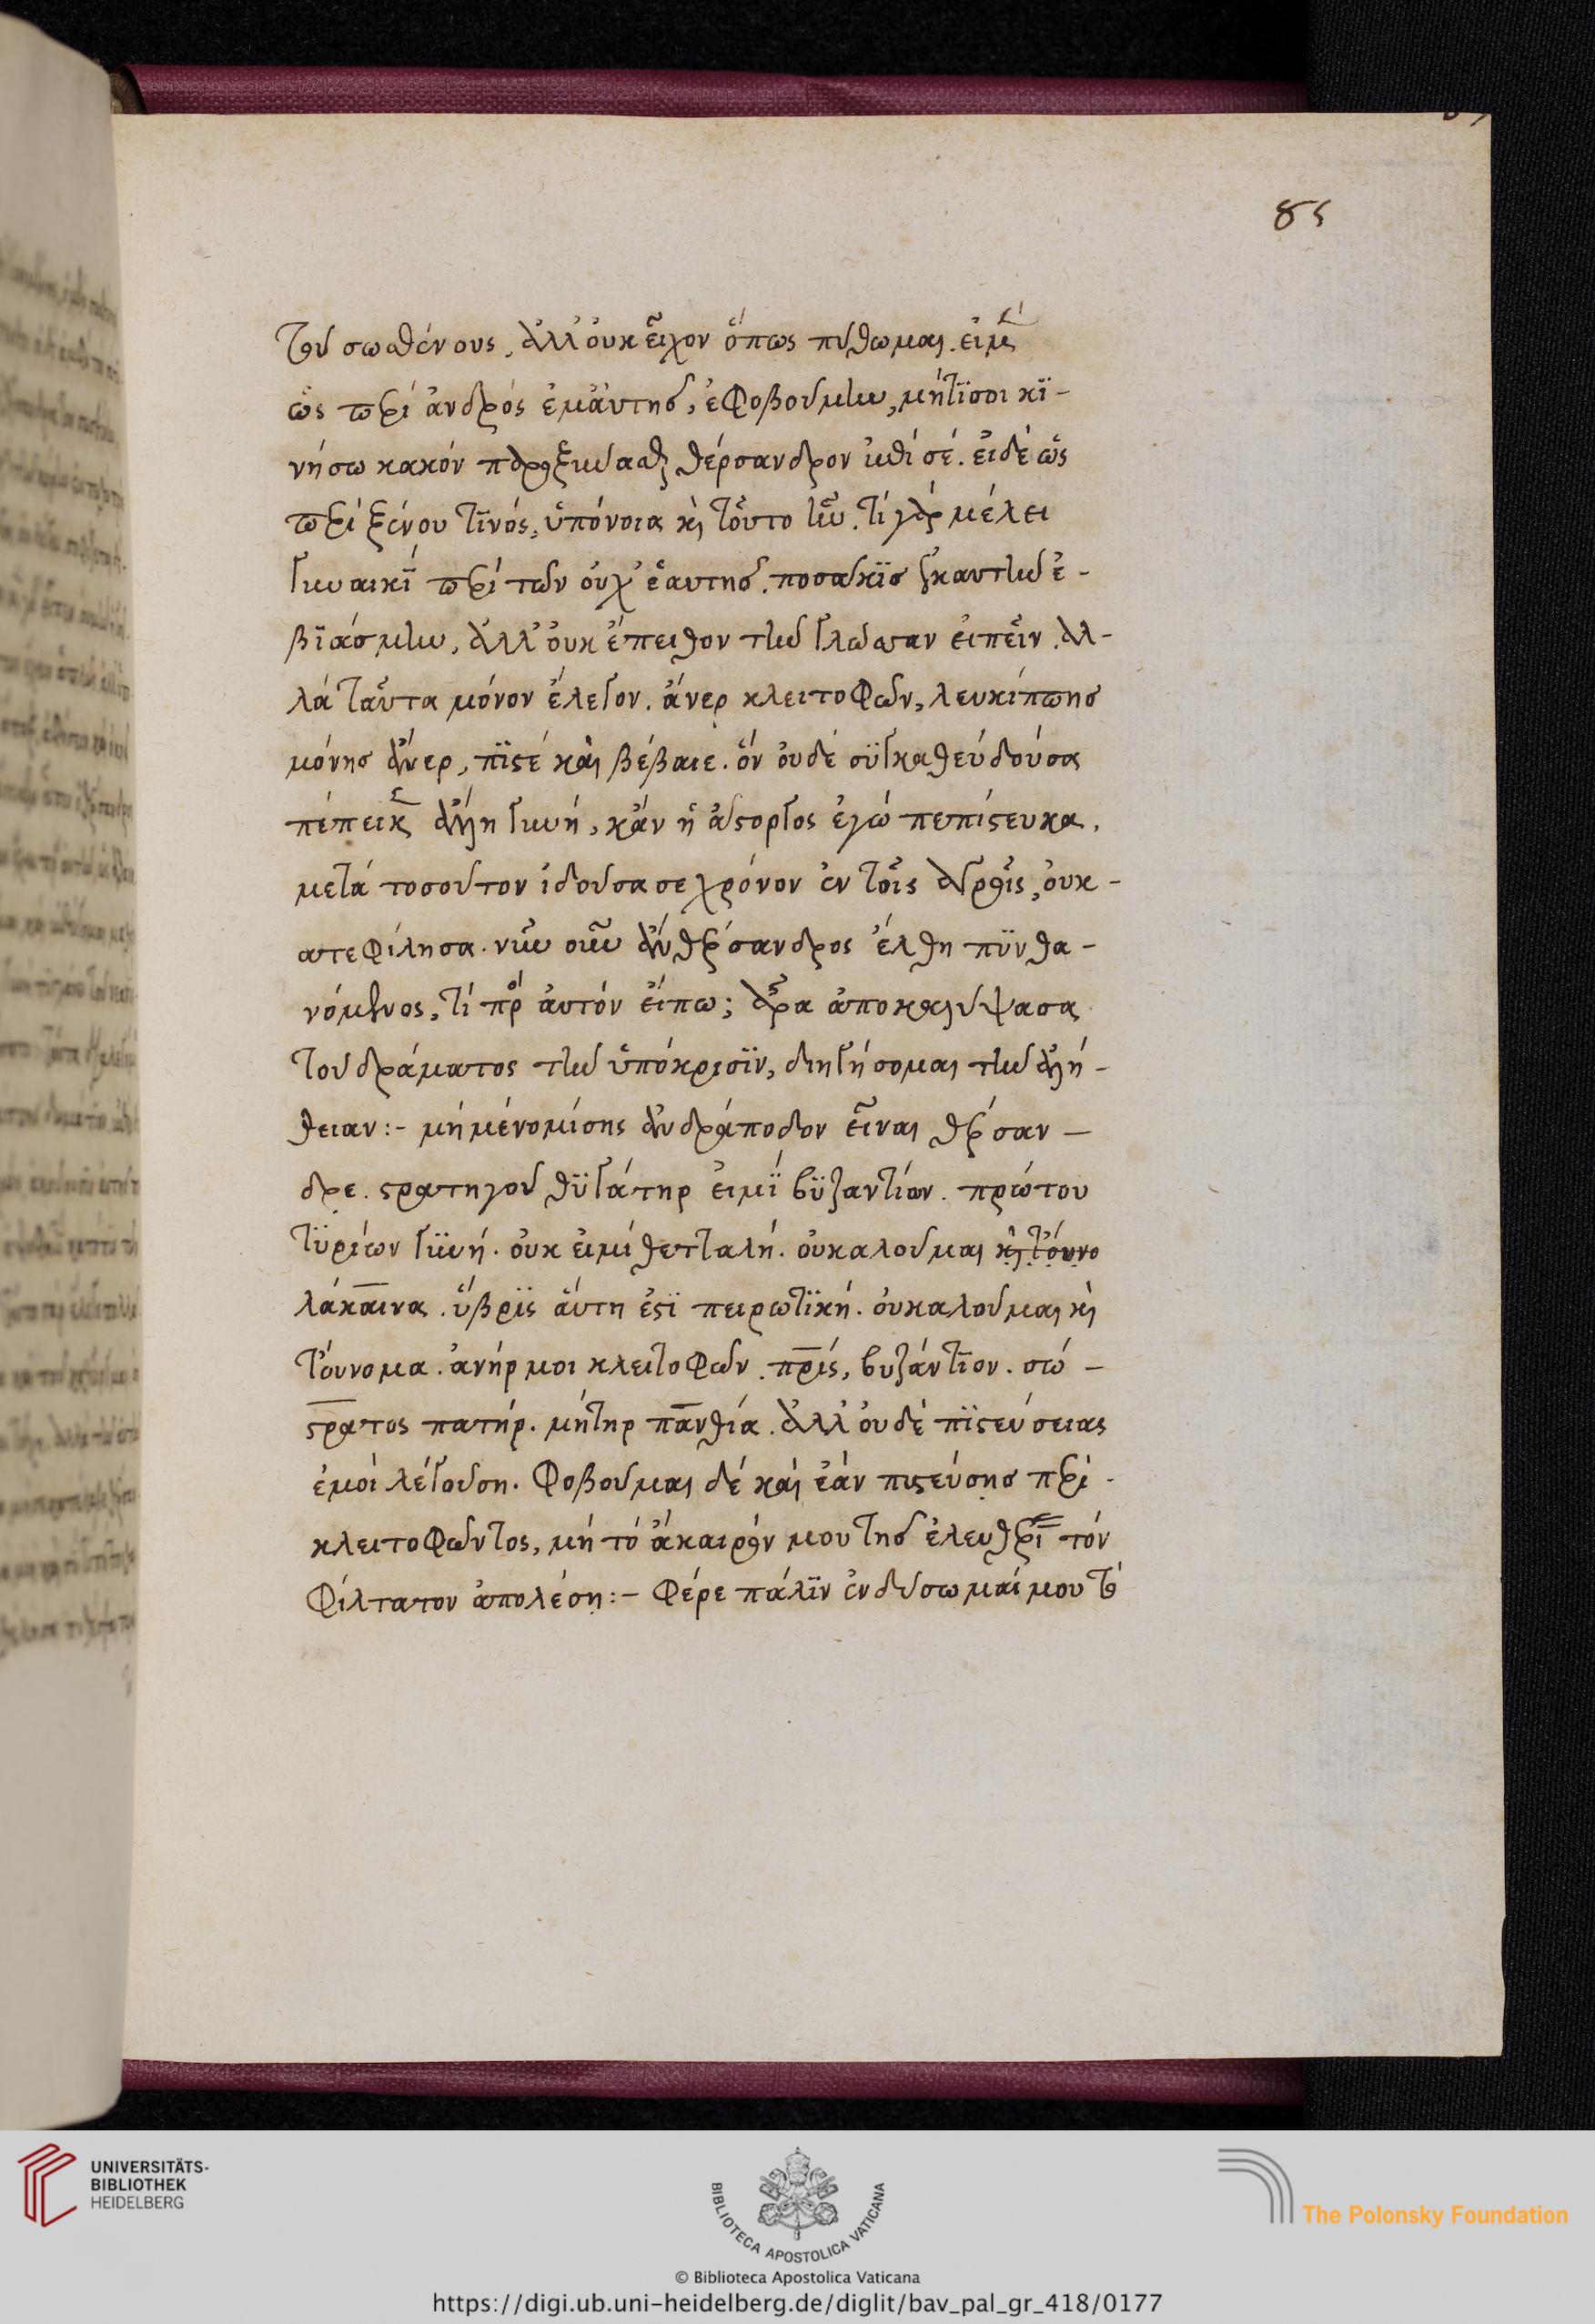 85
τοῦ σωσθένους, ἀλλ' οὐκ εἶχον ὅπως πύθωμαι. εἰ μὲν
ὡς περὶ ἀνδρὸς ἐμαυτῆς, ἐφοβούμην, μή τί σοι κι-
νήσω κακόν παροξύνασα θέρσανδρον ἐπί σέ. εἰ δὲ ὡς
περὶ ξένου τινός, ὑπόνοια καὶ τοῦτο ἦν. τί γὰρ μέλει
γυναικί περὶ τῶν οὐχ ἑαυτῆς. ποσάκις ἐμαυτὴν ἐ-
βιασάμην, ἀλλ' οὐκ ἔπειθον τὴν γλῶσσαν εἰπεῖν. ἀλ-
λὰ ταῦτα μόνον ἔλεγον. ἄνερ κλειτοφῶν, λευκίππης
μόνης ἄνερ, πιστέ καὶ βέβαιε. ὅν οὐδέ συγκαθεύδουσα
πέπεικεν ἄλλη γυνή, κἂν ἡ ἄστοργος ἐγὼ πεπίστευκα.
μετὰ τοσοῦτον ἰδοῦσα σε χρόνον ἐν τοῖς ἀγροῖς, οὐ κ-
ατεφίλησα. νῦν οὖν ἂν θέρσανδρος ἔλθη πυνθα-
νόμενος, τί πρὸς αὐτόν εἴπω; ἆρα ἀποκαλύψασα
τοῦ δράματος τὴν ὑπόκρισιν, διηγήσομαι τὴν ἀλή-
θειαν:- μή με νομίσης ἀνδράποδον εἶναι θέρσαν-
δρε. στρατηγοῦ θυγάτηρ εἰμί βυζαντίων. πρώτου
τυρίων γυνή. οὐκ εἰμί θετταλή. οὐ καλοῦμαι καὶ τοὔνο
λάκαινα. ὕβρις αὕτη ἐστί πειρατική. οὐ καλοῦμαι καὶ
τοὔνομα. ἀνήρ μοι κλειτοφῶν. πατρίς, βυζάντιον. σώ-
στρατος πατήρ. μήτηρ πανθία. ἀλλ' οὐδὲ πιστεύσειας
ἐμοὶ λεγούση. φοβοῦμαι δέ καὶ ἐὰν πιστεύσης περὶ
κλειτοφῶντος, μή τό ἄκαιρόν μου τῆς ἐλευθερίας τόν
φίλτατον ἀπολέση:- φέρε πάλιν ἐνδύσωμαί μου τὸ
UNIVERSITÄTS-
BIBLIOTHEK
HEIDELBERG
BIBLIOTECA APOSTOLICA VATICANA
The Polonsky Foundation
© Biblioteca Apostolica Vaticana
https://digi.ub.uni-heidelberg.de/diglit/bav_pal_gr_418/0177